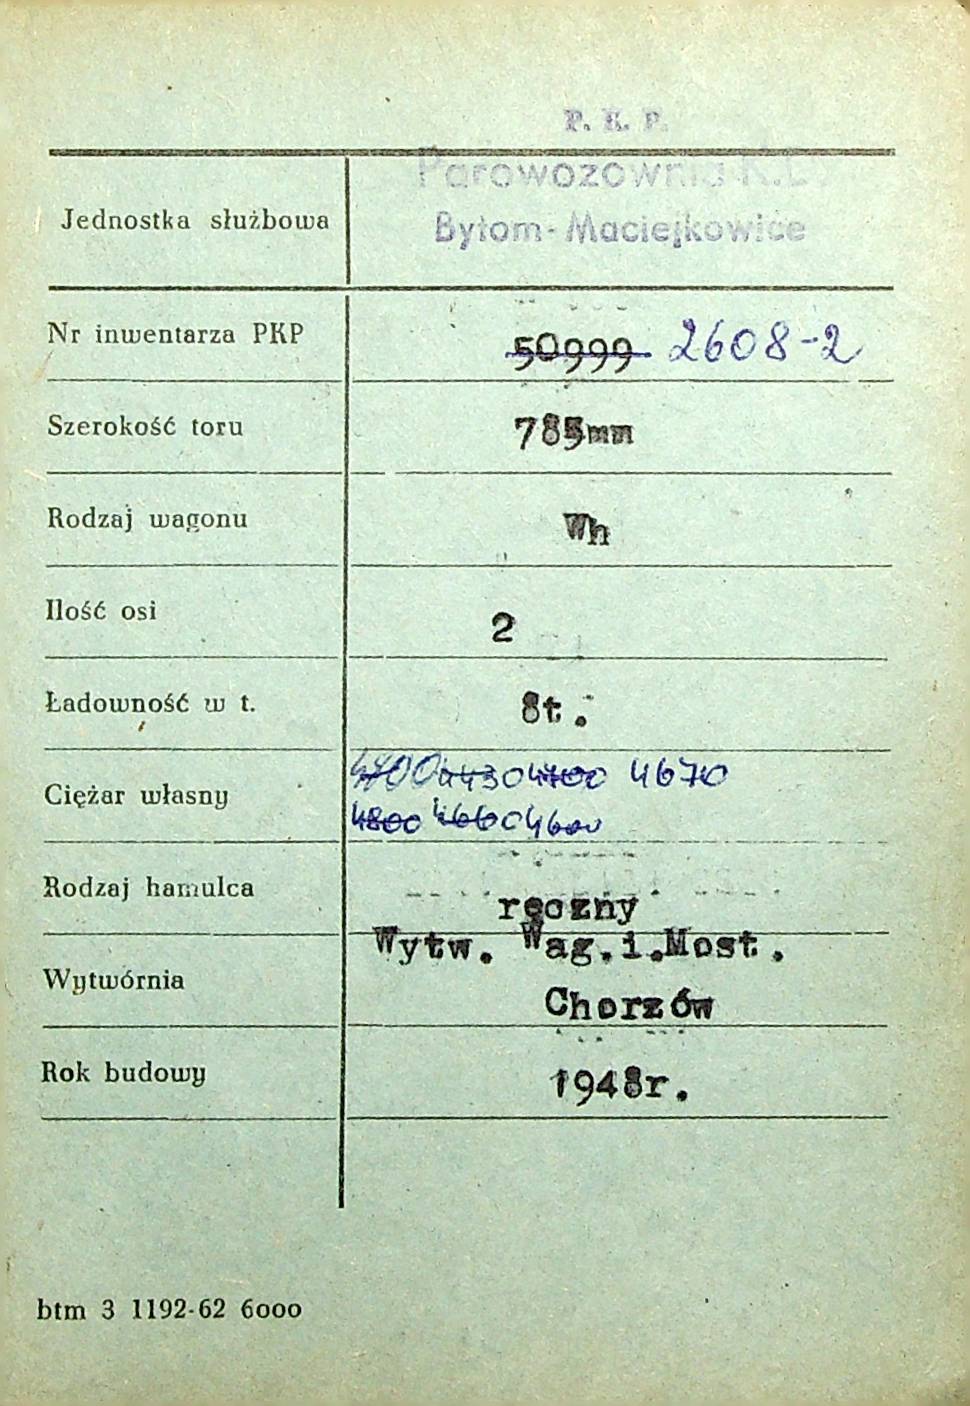 P. K. P.
Parowozownia K.D.
Bytom-Maciejkowice
Jednostka służbowa
Nr inwentarza PKP 50999 2608-2
Szerokość toru 785mm
Rodzaj wagonu Wh
Ilość osi 2
Ładowność w t. 8t.
4700 4430 4700 4670
Ciężar własny
4800 4660 4600
Rodzaj hamulca ręczny
Wytw. Wag.i.Most.
Wytwórnia
Chorzów
Rok budowy 1948r.
btm 3 1192-62 6000